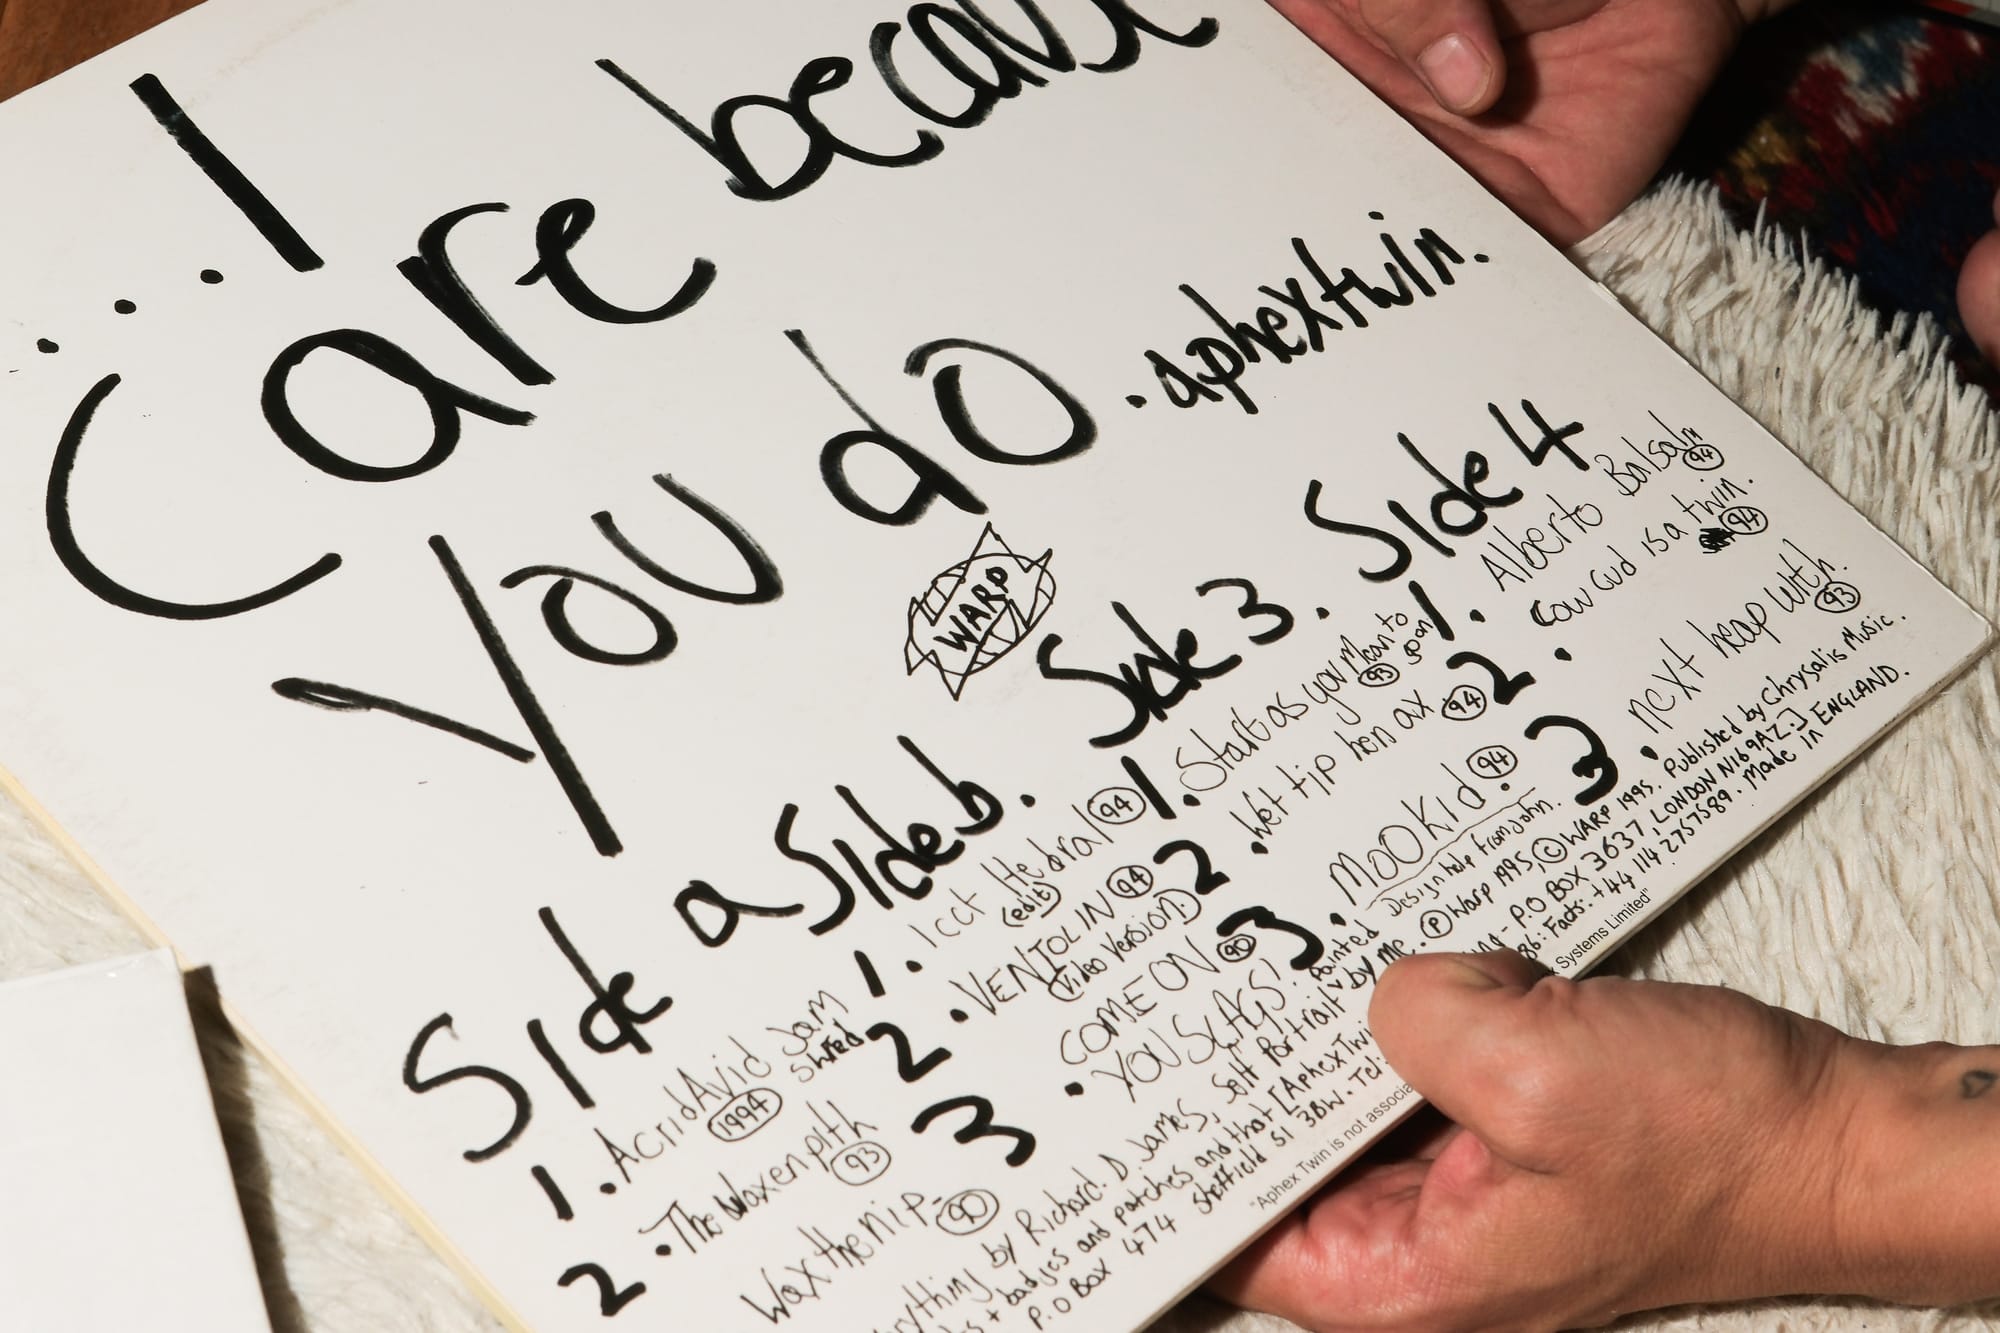 ...I
Care because
You do
.aphextwin.
WARP
Side a
1. AcridAvid Jam
Shred
1994
2. The Waxen pith
93
Wax the nip-
90
Side b.
1. Icct Hedral 94
(edit)
2. VENTOLIN 94
(Video Version.)
3. COME ON 90
YOU SLAGS!
Side 3.
1. Start as you Mean to
93 go on
2. Wet tip hen ax 94
3. MOOKID. 94
Side 4
1. Alberto Balsalm
94
2. Cow Cud is a twin.
94
3. next heap with.
93
Design help from John.
by Richard. D. James, Self Portrait Painted by me. Ⓟ Warp 1995, © WARP 1995. Published by Chrysalis Music.
+ badges and patches and that [Aphex Twi - P.O BOX 3637, LONDON N169AZ.]
P.O Box 474 Sheffield S1 3BW. Tel. 86: Facts: +44 114 2757589. Made in ENGLAND.
"Aphex Twin is not associa Systems Limited"